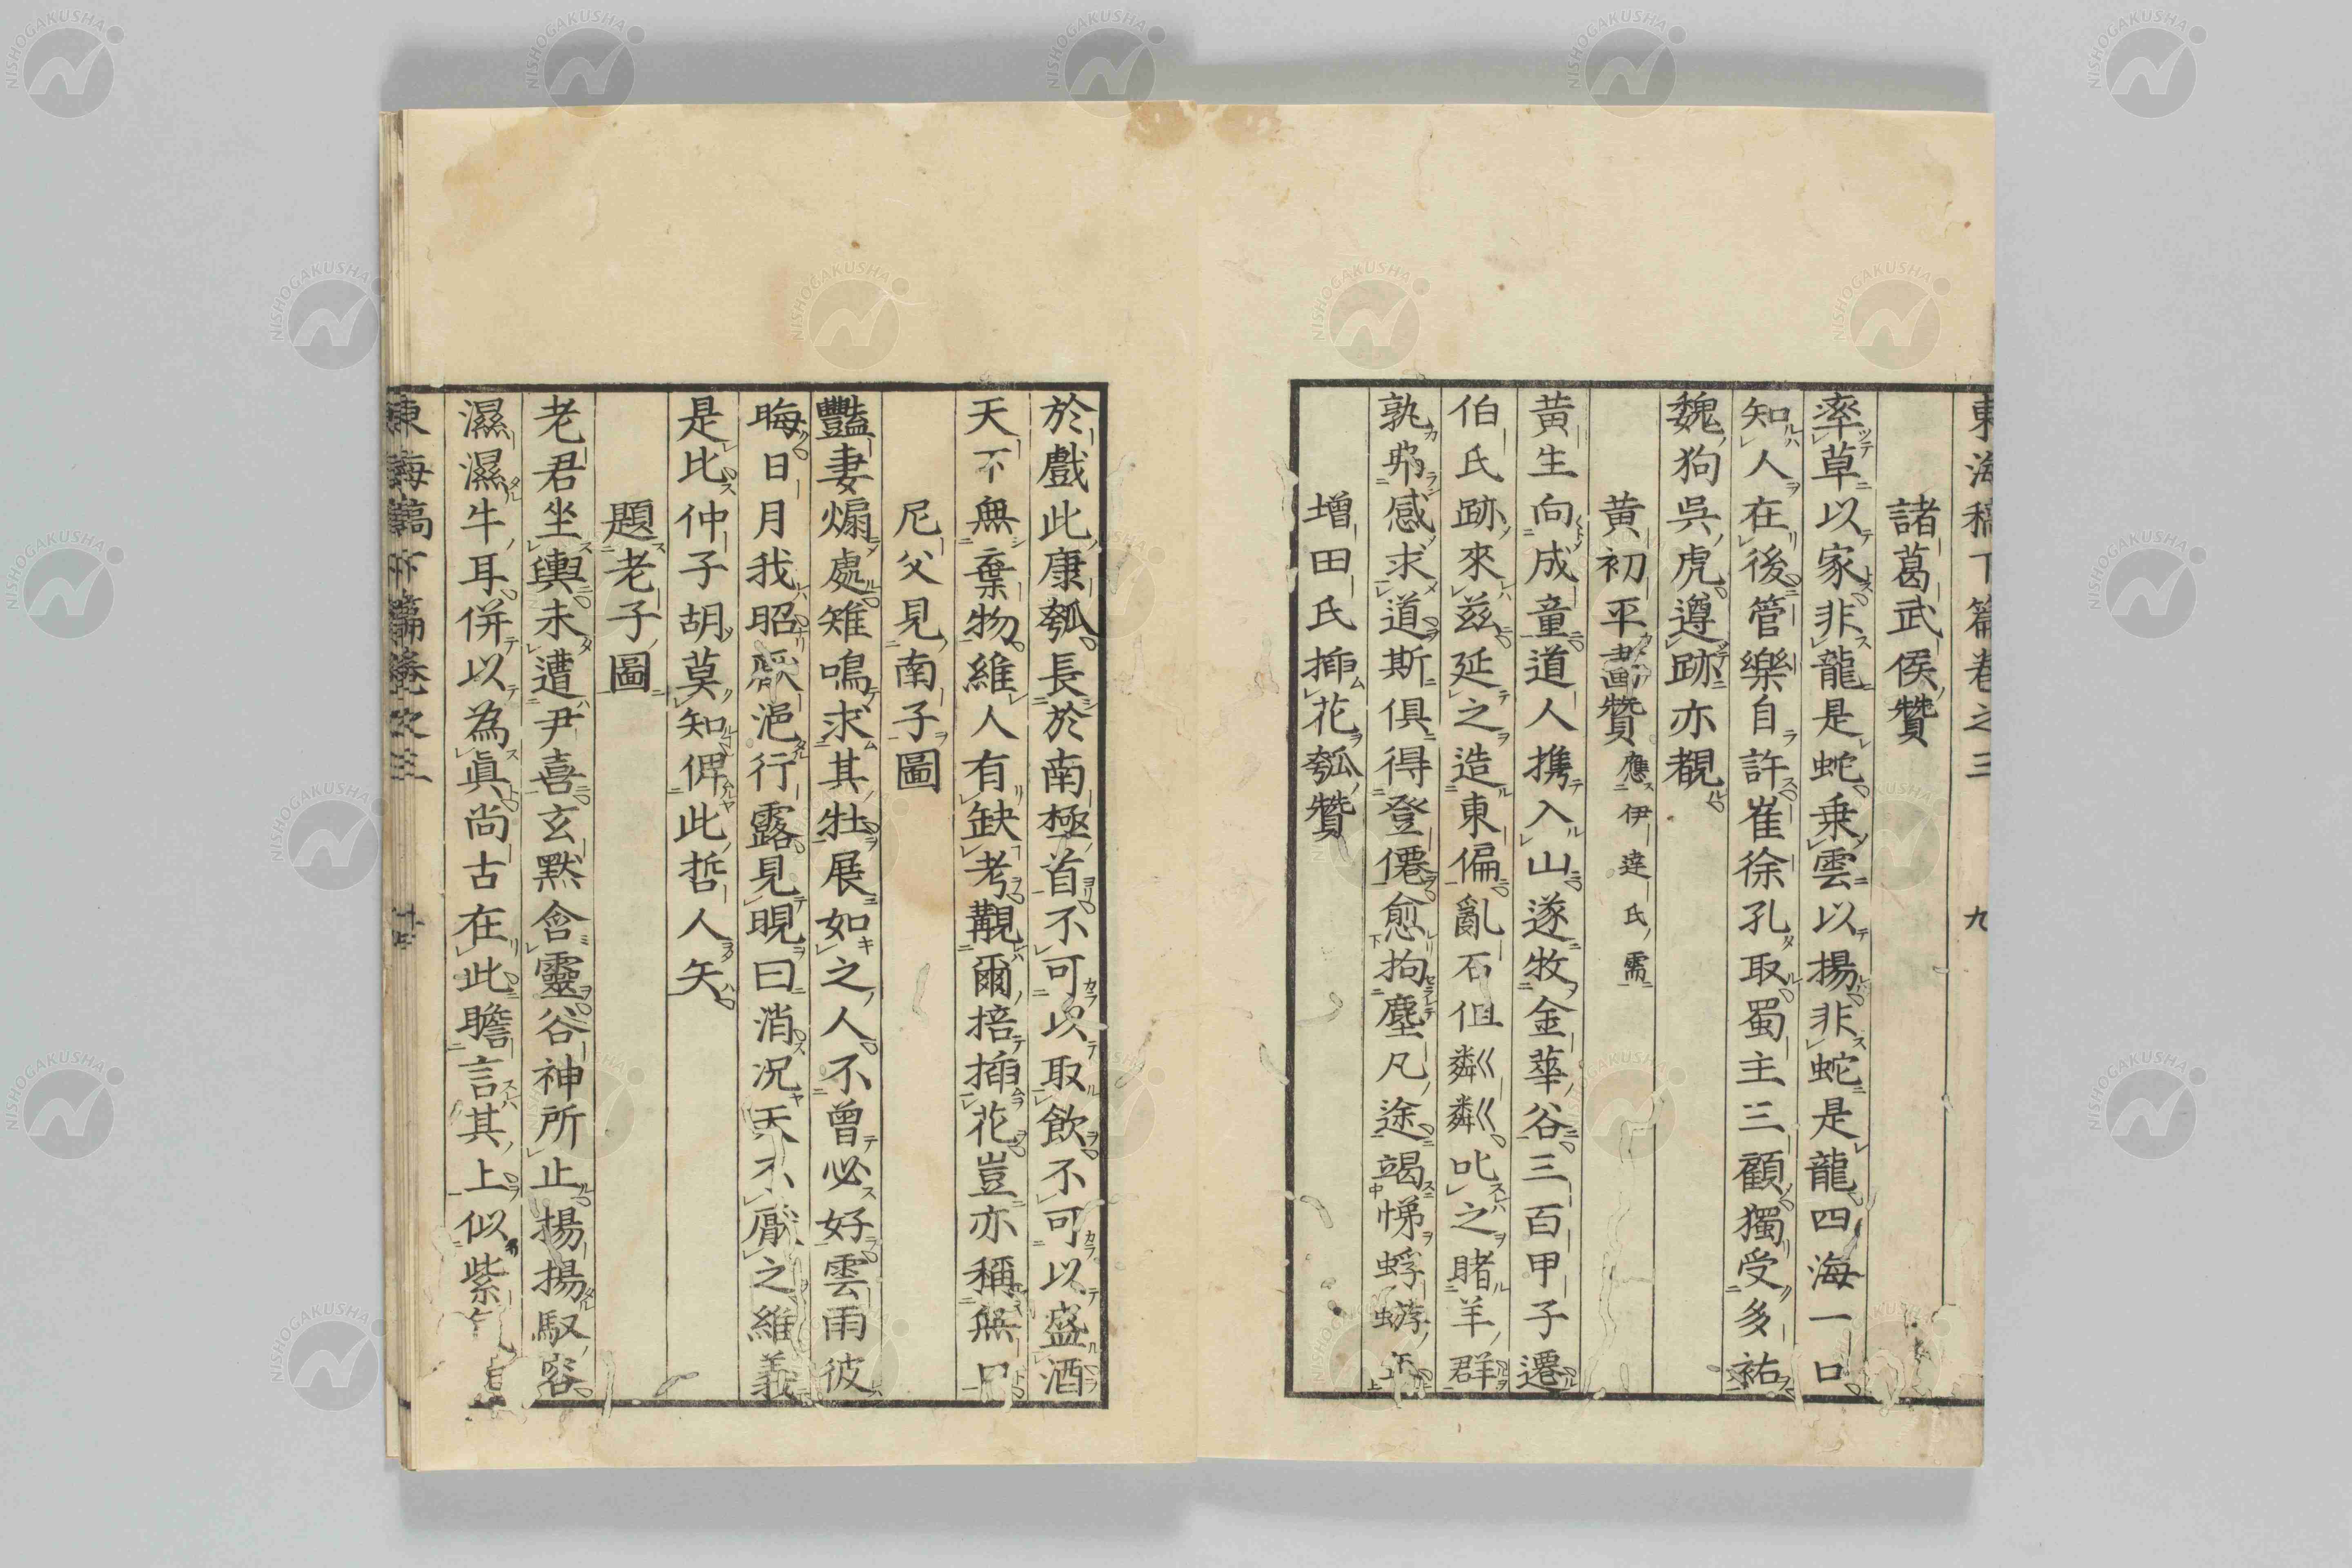 東海稿下篇卷之三 九
諸葛武侯贊
率草以家非龍是蛇乘雲以揚非蛇是龍四海一口
知人在後管樂自許崔徐孔取蜀主三顧獨受多祐
魏狗吳虎遵跡亦覩
黃初平畫贊 應伊達氏需
黃生向成童道人攜入山遂牧金華谷三百甲子遷
伯氏跡來茲延之造東偏亂石但粼粼叱之睹羊群
孰弗感求道斯俱得登僊愈拘塵凡途竭悌蜉蝣
増田氏挿花瓠贊
於戲此康瓠長於南極首不可以取飲不可以盛酒
天不無棄物維人有缺考觀爾掊挿花豈亦稱無
尼父見南子圖
豔妻煽處雉鳴求其牡展如之人不曾必好雲雨彼
晦日月我昭浥行露見晛曰消況天不厭之維義
是比仲子胡莫知俾此哲人矢
題老子圖
老君坐輿未遭尹喜玄黙含靈谷神所止揚揚馭容
濕濕牛耳併以為眞尚古在此瞻言其上似紫
東海稿下篇卷之三